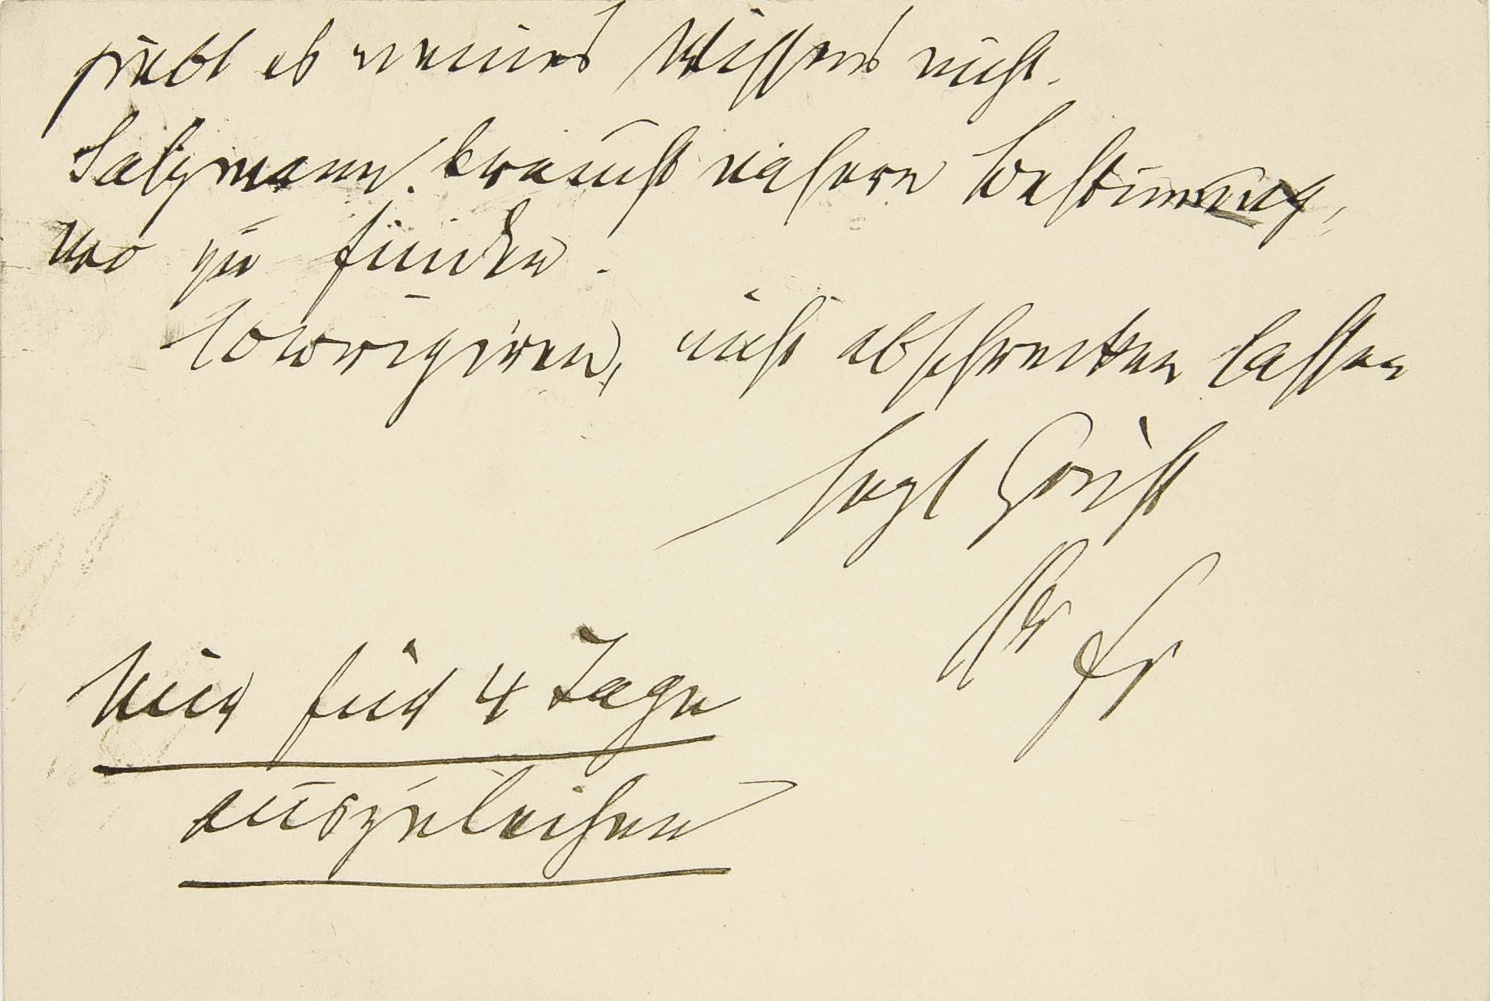 giebt es meines Wissens nicht.
Salzmann braucht nähere Bestimmung,
wo zu finden.
Corrigiren, nicht abschrecken lassen
sagt
Ihr Fr
Nur für 4 Tage
auszuleihen